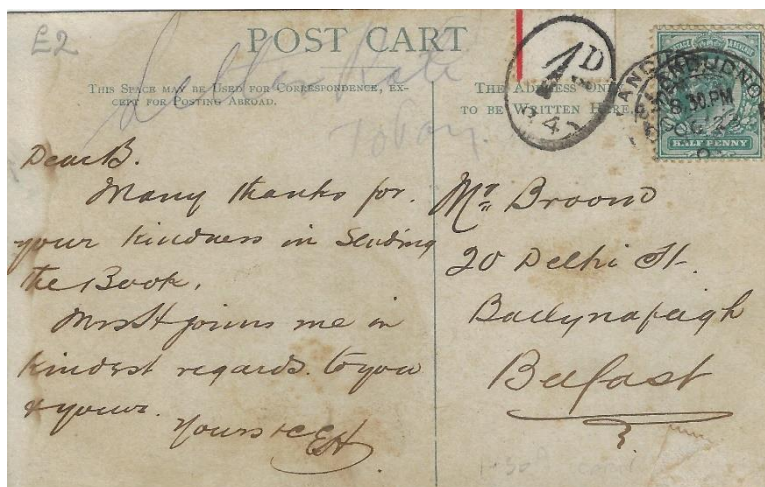 £2
POST CART
Letter Rate
To Pay.
THIS SPACE MAY BE USED FOR CORRESPONDENCE, EX-
CEPT FOR POSTING ABROAD.
THE ADDRESS ONLY
TO BE WRITTEN HERE.
1D
Z 4
LLANDUDNO
8.30 PM
OC 22
HALF PENNY
Dear B.
Many thanks for.
your kindness in sending
the Book.
Mrs H joins me in
kindest regards. to you
& yours.
Yours &c EH
Mr Broom
20 Delhi St.
Ballynafeigh
Belfast